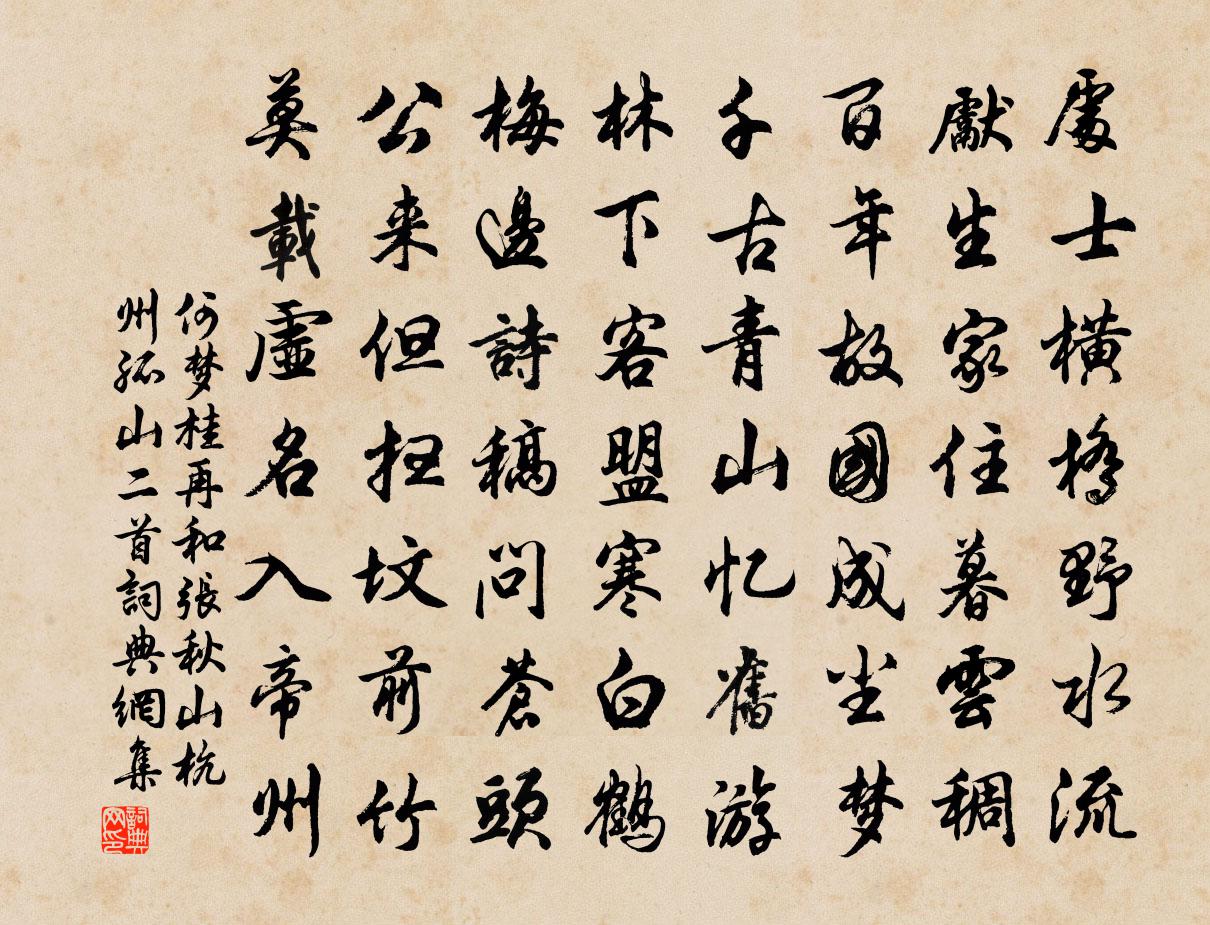 處士橫橋野水流
獻生家住暮雲稠
百年故國成尘梦
千古青山忆舊游
林下客盟寒白鶴
梅邊詩稿問蒼頭
公来但扫坟前竹
莫載虛名入帝州
何梦桂再和張秋山杭
州孤山二首詞典網集
詞典
网印